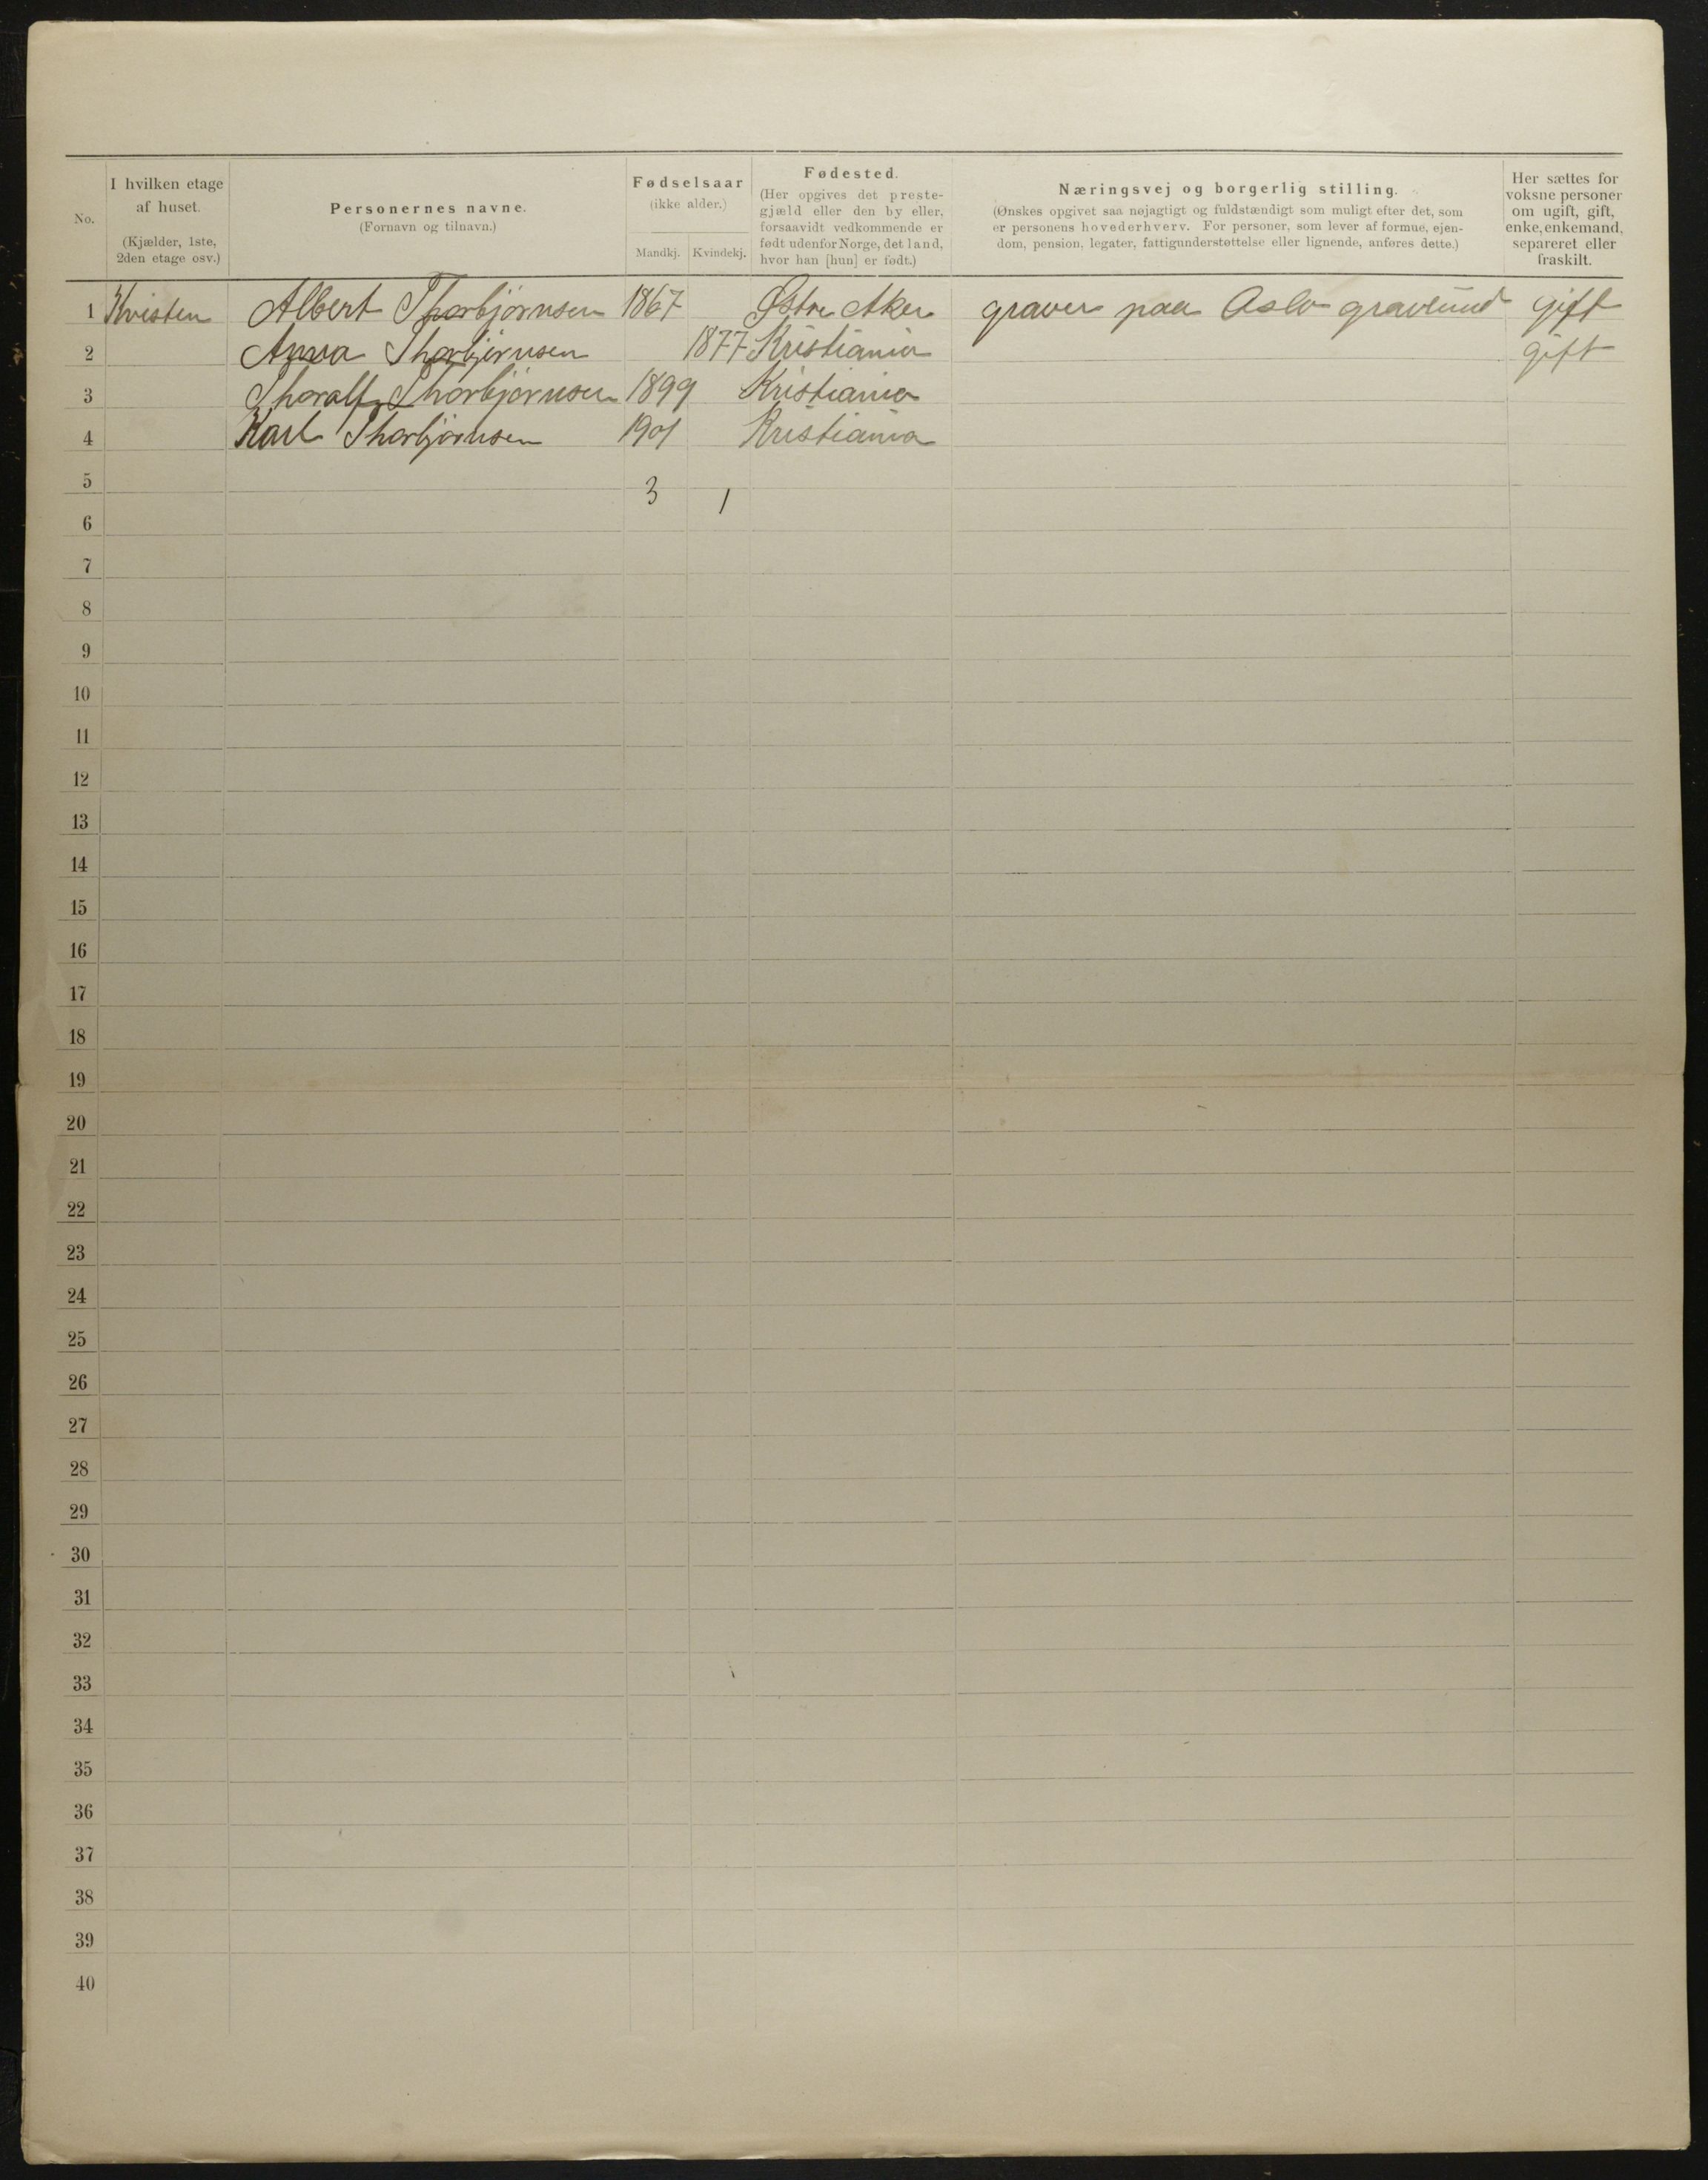 No.
I hvilken etage
af huset.
(Kjælder, 1ste,
2den etage osv.)
Personernes navne.
(Fornavn og tilnavn.)
Fødselsaar
(ikke alder.)
Mandkj. Kvindekj.
Fødested.
(Her opgives det preste-
gjæld eller den by eller,
forsaavidt vedkommende er
født udenfor Norge, det land,
hvor han [hun] er født.)
Næringsvej og borgerlig stilling.
(Ønskes opgivet saa nøjagtigt og fuldstændigt som muligt efter det, som
er personens hovederhverv. For personer, som lever af formue, ejen-
dom, pension, legater, fattigunderstøttelse eller lignende, anføres dette.)
Her sættes for
voksne personer
om ugift, gift,
enke, enkemand,
separeret eller
fraskilt.
1 Kvisten Albert Thorbjørnsen 1867 Østre Aker graver paa Oslo gravlund gift
2 Anna Thorbjørnsen 1877 Kristiania gift
3 Thoralf Thorbjørnsen 1899 Kristiania
4 Karl Thorbjørnsen 1901 Kristiania
5 3 1
6
7
8
9
10
11
12
13
14
15
16
17
18
19
20
21
22
23
24
25
26
27
28
29
30
31
32
33
34
35
36
37
38
39
40